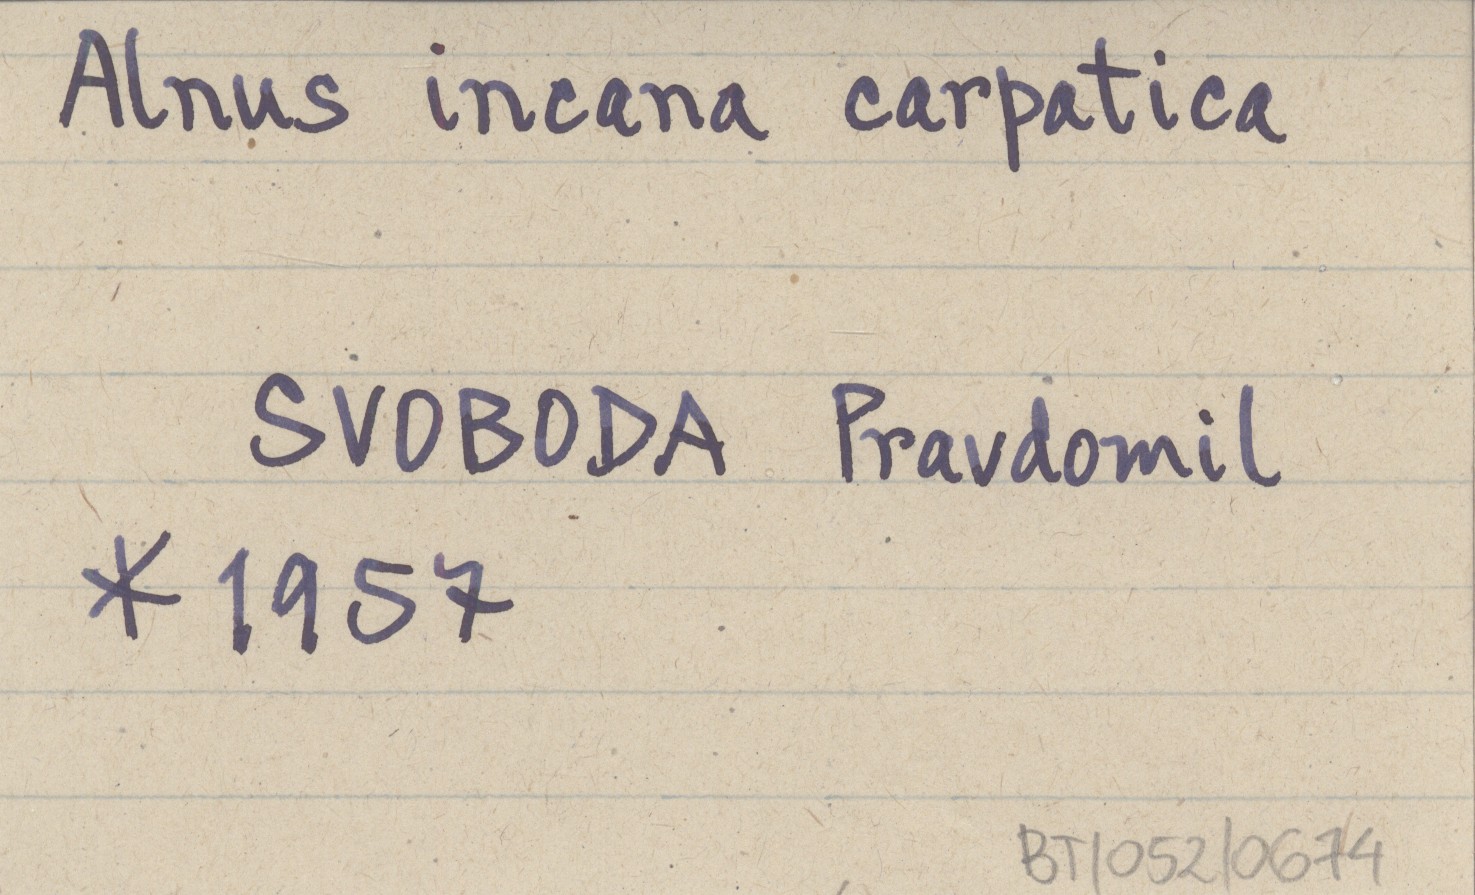 Alnus incana carpatica
SVOBODA Pravdomil
* 1957
BT/052/0674